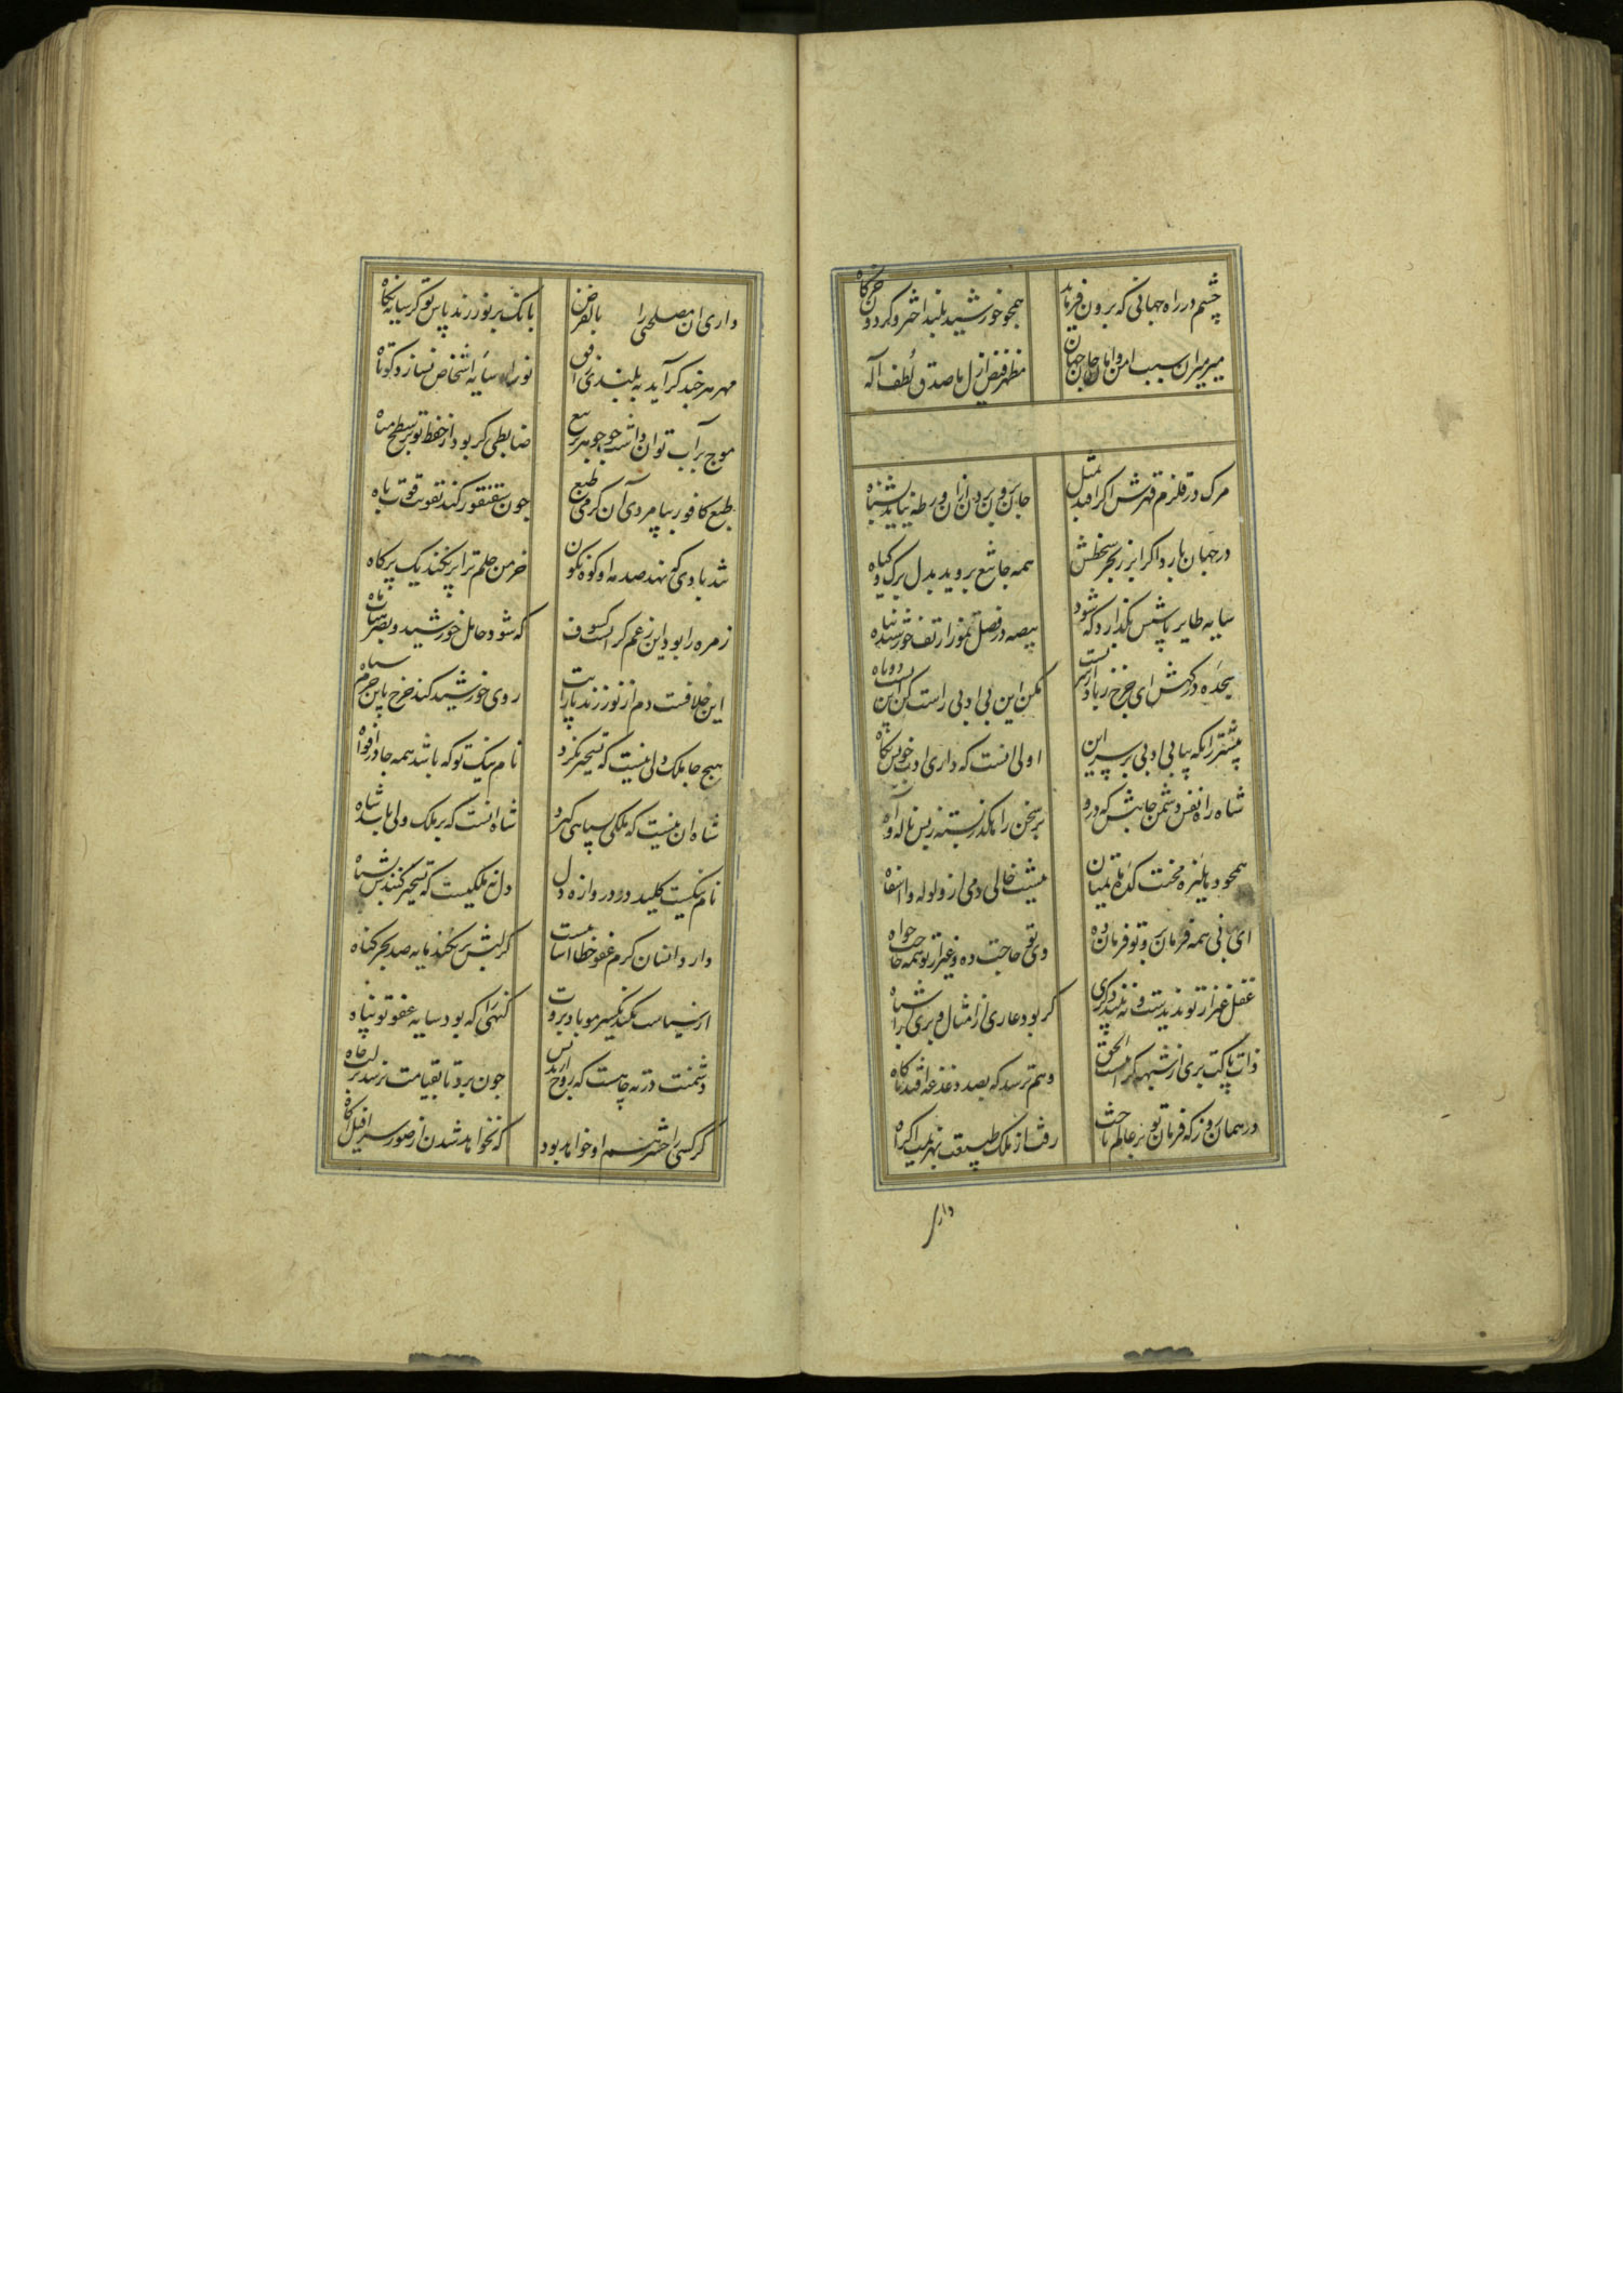 چشم در راه جهانی که برون فرماید همچو خورشید بلند اختر و گردون خرگاه
میر میران سبب امن و امان جان جهان مظهر فیض ازل ما صدق لطف اله
مرک در قلزم قهرش اکر افتد بمثل جان برون بردن ازان ورطه نیابد بشناه
در جهان بارد اکر ابر ز بحر سخطش همه جا تیغ بروید بدل برک کیاه
سایه طایر باسش نکذارد که شود بیضه در فصل تموز از تف خورشید تباه
سجده درکهش ای چرخ زیاد از سر تست مکن این بی ادبی راست کن این پشت دو تاه
پیشتر زانکه بپا بی ادبی بر سر این اولی انست که داری ادب خویش نکاه
شاه را نفس دشمن جاهش که درو بر سخن راه کذر بسته ز بس ناله و آه
همچو دهلیزه محنت کده ماتمیان نیست خالی دمی از ولوله وا اسفاه
ای بنی همه فرمان بر و تو فرمان ده وی تو حاجت ده و غیر از تو همه حاجت خواه
عقل غیر از تو ندیدست و نه بیند دکری کر بود عاری از امثال و بری از اشباه
ذات پاکت بری از شبه کز انست الحق وهم ترسد که بصد دغدغه افتد ناکاه
در همان روز که فرمان تو بر عالم تاخت رفت از ملک طبیعت بهزیمت اکراه
داری
داری ان مصلحتی را بالفرض بانک بر نور زند پاس تو کر سایه نکاه
مهر هر چند کر آید به بلندی افق نور او سایه اشخاص نسازد کوتاه
موج بر آب توان داشت چو جوهر بر تیغ ضابطی کر بود از حفظ تو بر سطح میاه
طبع کافور بیامردی آن کرمی طبع چون سقنقور کند تقویت قوت باه
شد بادی که نهد صدمه او کوه نکون خرمن حلم ترا بر نکند یک پر کاه
زمره را بود این زعم کز است کسوف که شود حایل خورشید و بصر هیات ماه
این خلافست دم از نور زند با رایت روی خورشید کند چرخ باین جرم سیاه
هیچ جا ملک دلی نیست که تسخیر نکرد نام نیک تو که باشد همه جا در افواه
شاه ان نیست که ملکی بسپاهی کیرد شاه انست که بر ملک دلی باشد شاه
نام نیکست کلید در دروازه دل دل نه ملکیست که تسخیر کنندش بسپاه
دارد انسان کرم عفو خطا اسانیست کر لبش بر نکند مایه صد بحر کناه
از سیاست نکند یکسر مو باد بروت کنهی را که بود سایه عفو تو پناه
دشمنت در ته چاهیست که روح ار بدنش چون برد تا بقیامت نرسد بر لب چاه
کر کسی را حشر هم او خواهد بود که نخواهد شدن از صور سرافیل آکاه